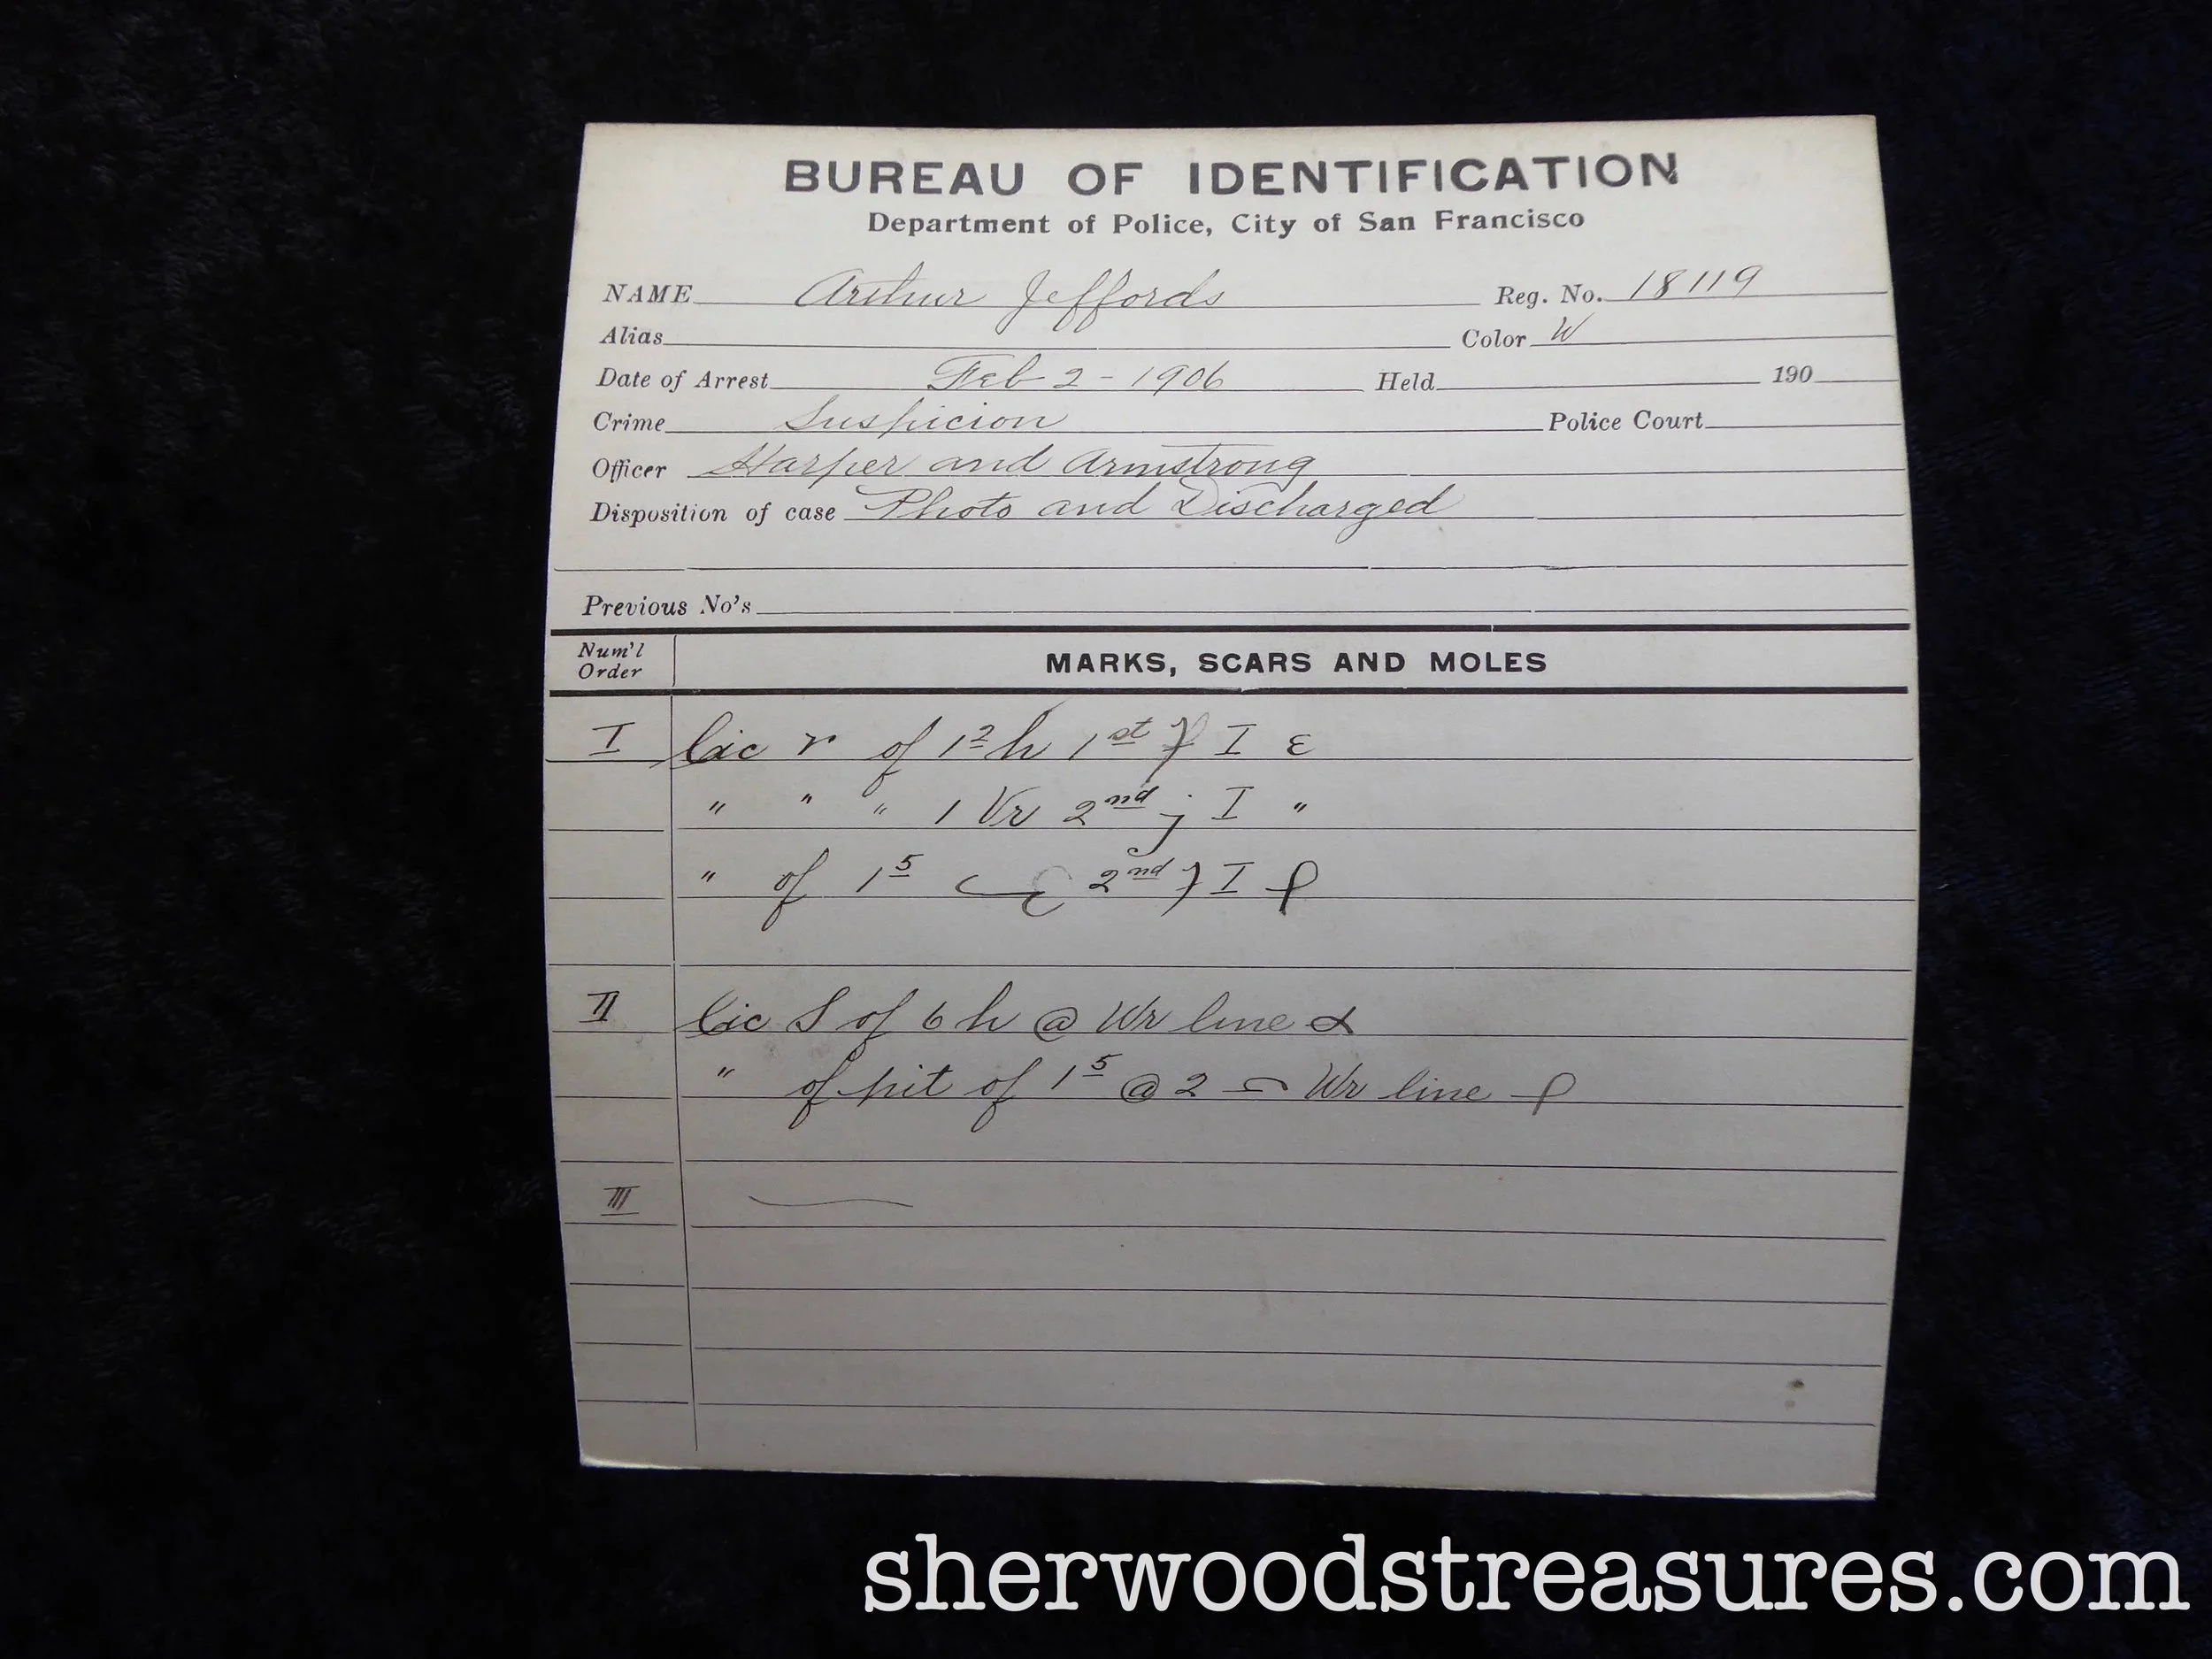 BUREAU OF IDENTIFICATION
Department of Police, City of San Francisco
NAME Arthur Jeffords Reg. No. 18119
Alias Color W
Date of Arrest Feb 2 - 1906 Held 190
Crime Suspicion Police Court
Officer Harper and Armstrong
Disposition of case Photo and Discharged
Previous No's
Num'l Order MARKS, SCARS AND MOLES
I Cic r of 1 2 h 1st I ε
" " " 1 Vr 2nd j I "
" of 1 5 2nd I
II Cic S of 6 h @ Wr line
" of pit of 1 5 @ 2 Wr line
III
sherwoodstreasures.com